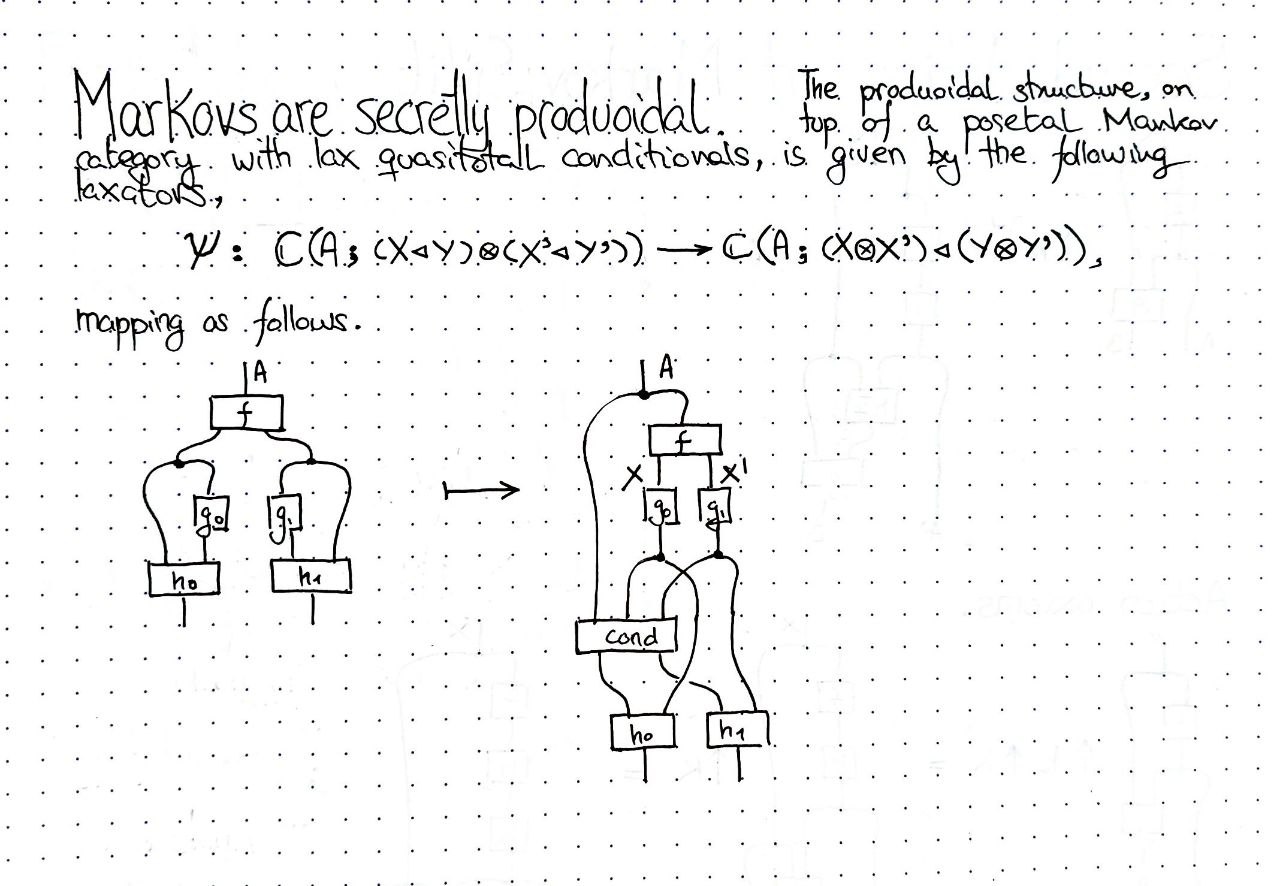 Markovs are secretly produoidal. The produoidal structure, on
top of a posetal Markov
category with lax quasitotal conditionals, is given by the following
laxators,
Ψ : ℂ(A ; (X◁Y)⊗(X'◁Y')) → ℂ(A ; (X⊗X')◁(Y⊗Y')),
mapping as follows.
A
f
g₀ g₁
h₀ h₁
A
f
X X'
g₀ g₁
cond
h₀ h₁